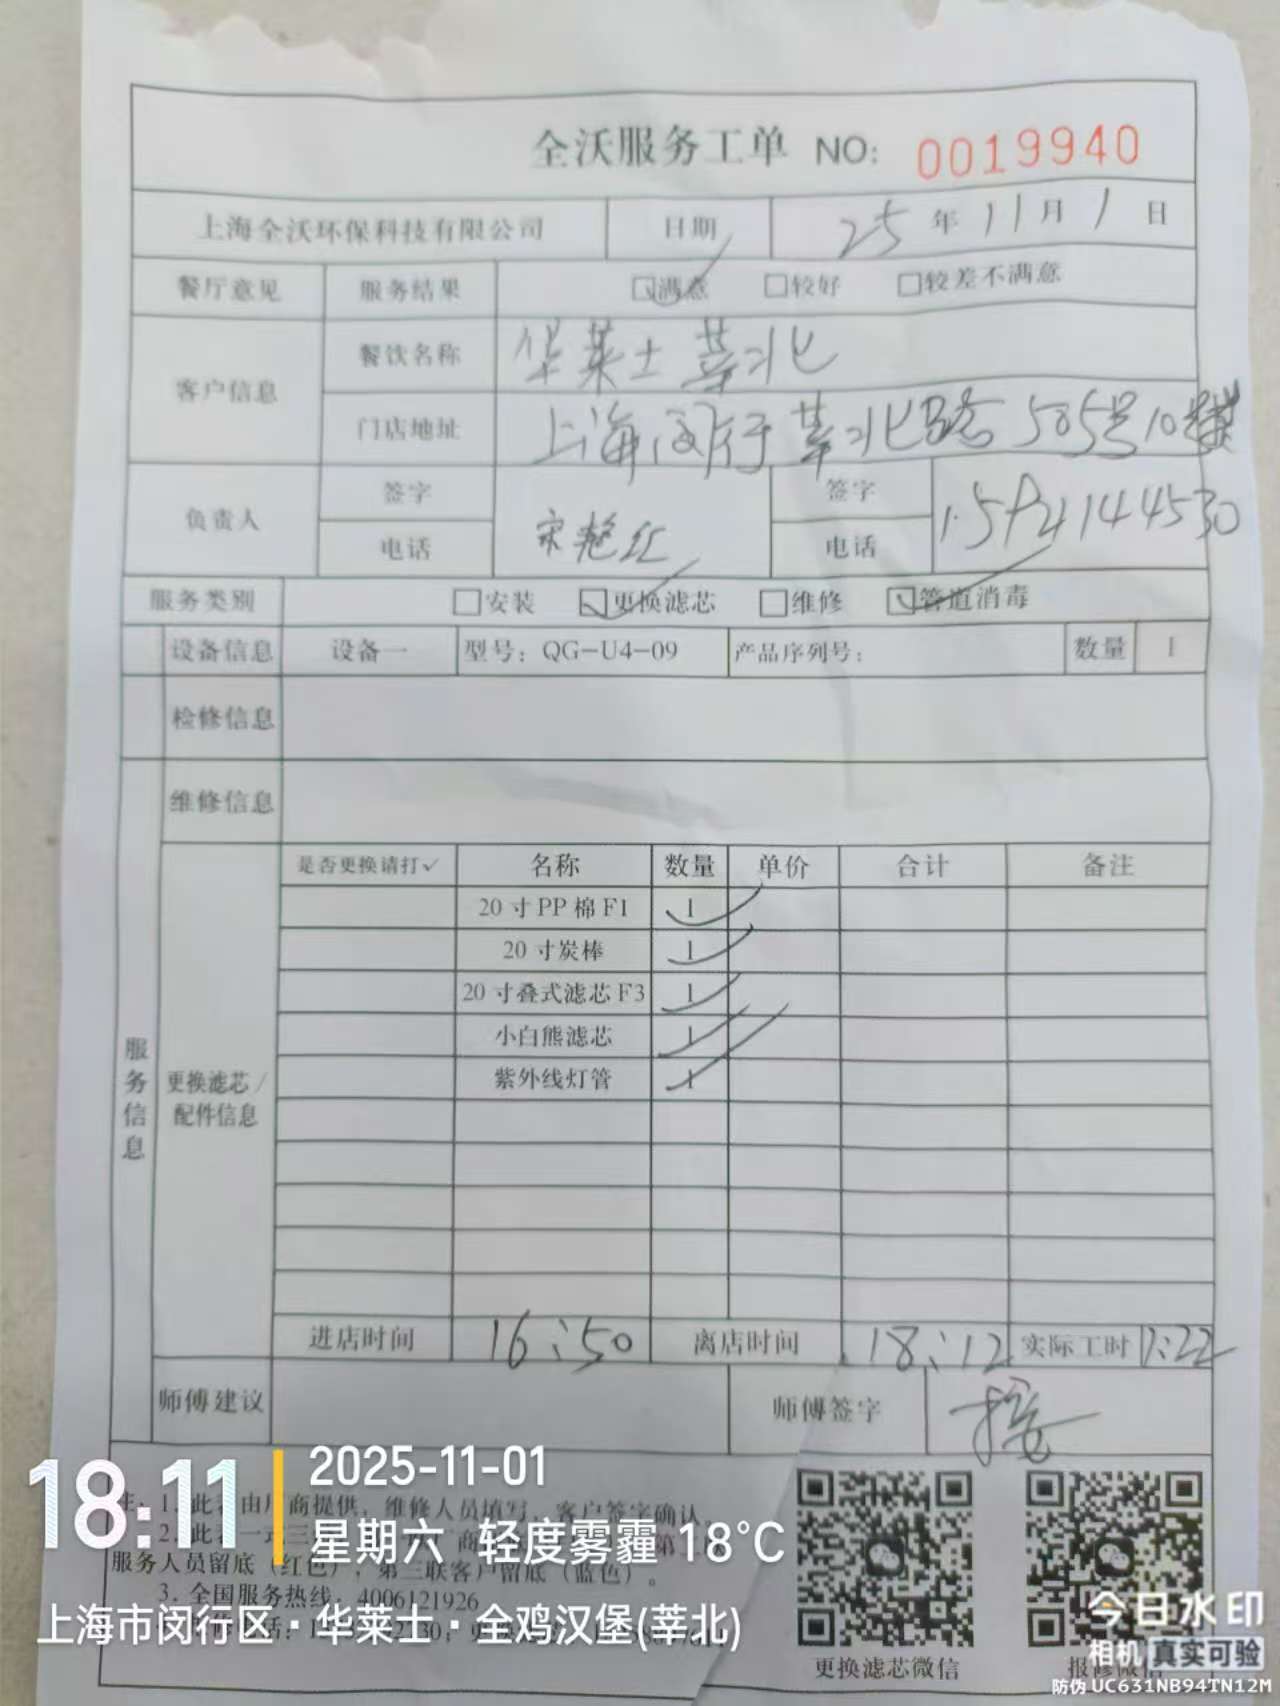 全沃服务工单 NO: 0019940
上海全沃环保科技有限公司 日期 25年11月1日
餐厅意见 服务结果 ☑满意 □较好 □较差不满意
客户信息 餐饮名称 华莱士莘北
门店地址 上海闵行莘北路505号10楼
负责人 签字 宋艳红 签字
电话 电话
服务类别 □安装 ☑更换滤芯 □维修 ☑管道消毒
设备信息 设备一 型号：QG-U4-09 产品序列号： 数量 1
检修信息
维修信息
服务信息
更换滤芯/配件信息
是否更换请打✓ 名称 数量 单价 合计 备注
20寸PP棉F1 1 ✓
20寸炭棒 1 ✓
20寸叠式滤芯F3 1 ✓
小白熊滤芯 1 ✓
紫外线灯管 1 ✓
进店时间 16:50 离店时间 18:12 实际工时 1:22
师傅建议 师傅签字
注：1. 此 由厂商提供，维修人员填写，客户签字确认。
2. 此 一式三 商 第
服务人员留底（红色），第三联客户留底（蓝色）。
3. 全国服务热线：4006121926
更换滤芯微信 报修微信
18:11 2025-11-01
星期六 轻度雾霾 18°C
上海市闵行区·华莱士·全鸡汉堡(莘北)
今日水印
相机 真实可验
防伪 UC631NB94TN12M